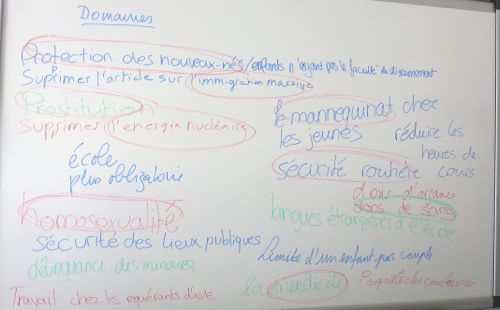 Domaines
Protection des nouveaux-nés/enfants n'ayant pas la faculté de discernement
Suprimer l'article sur l'immigration massive
Prostitution
le mannequinat chez les jeunes
Suprimer l'énergie nucléaire
réduire les heures de cours
école plus obligatoire
Sécurité routière
dons d'organes
dons de sang
homosexualité
langues étrangères à l'école
Sécurité des lieux publiques
Limite d'un enfant par couple
délinquance des mineurs
la mendicité
Propriété des
Travail chez les requérants d'asile